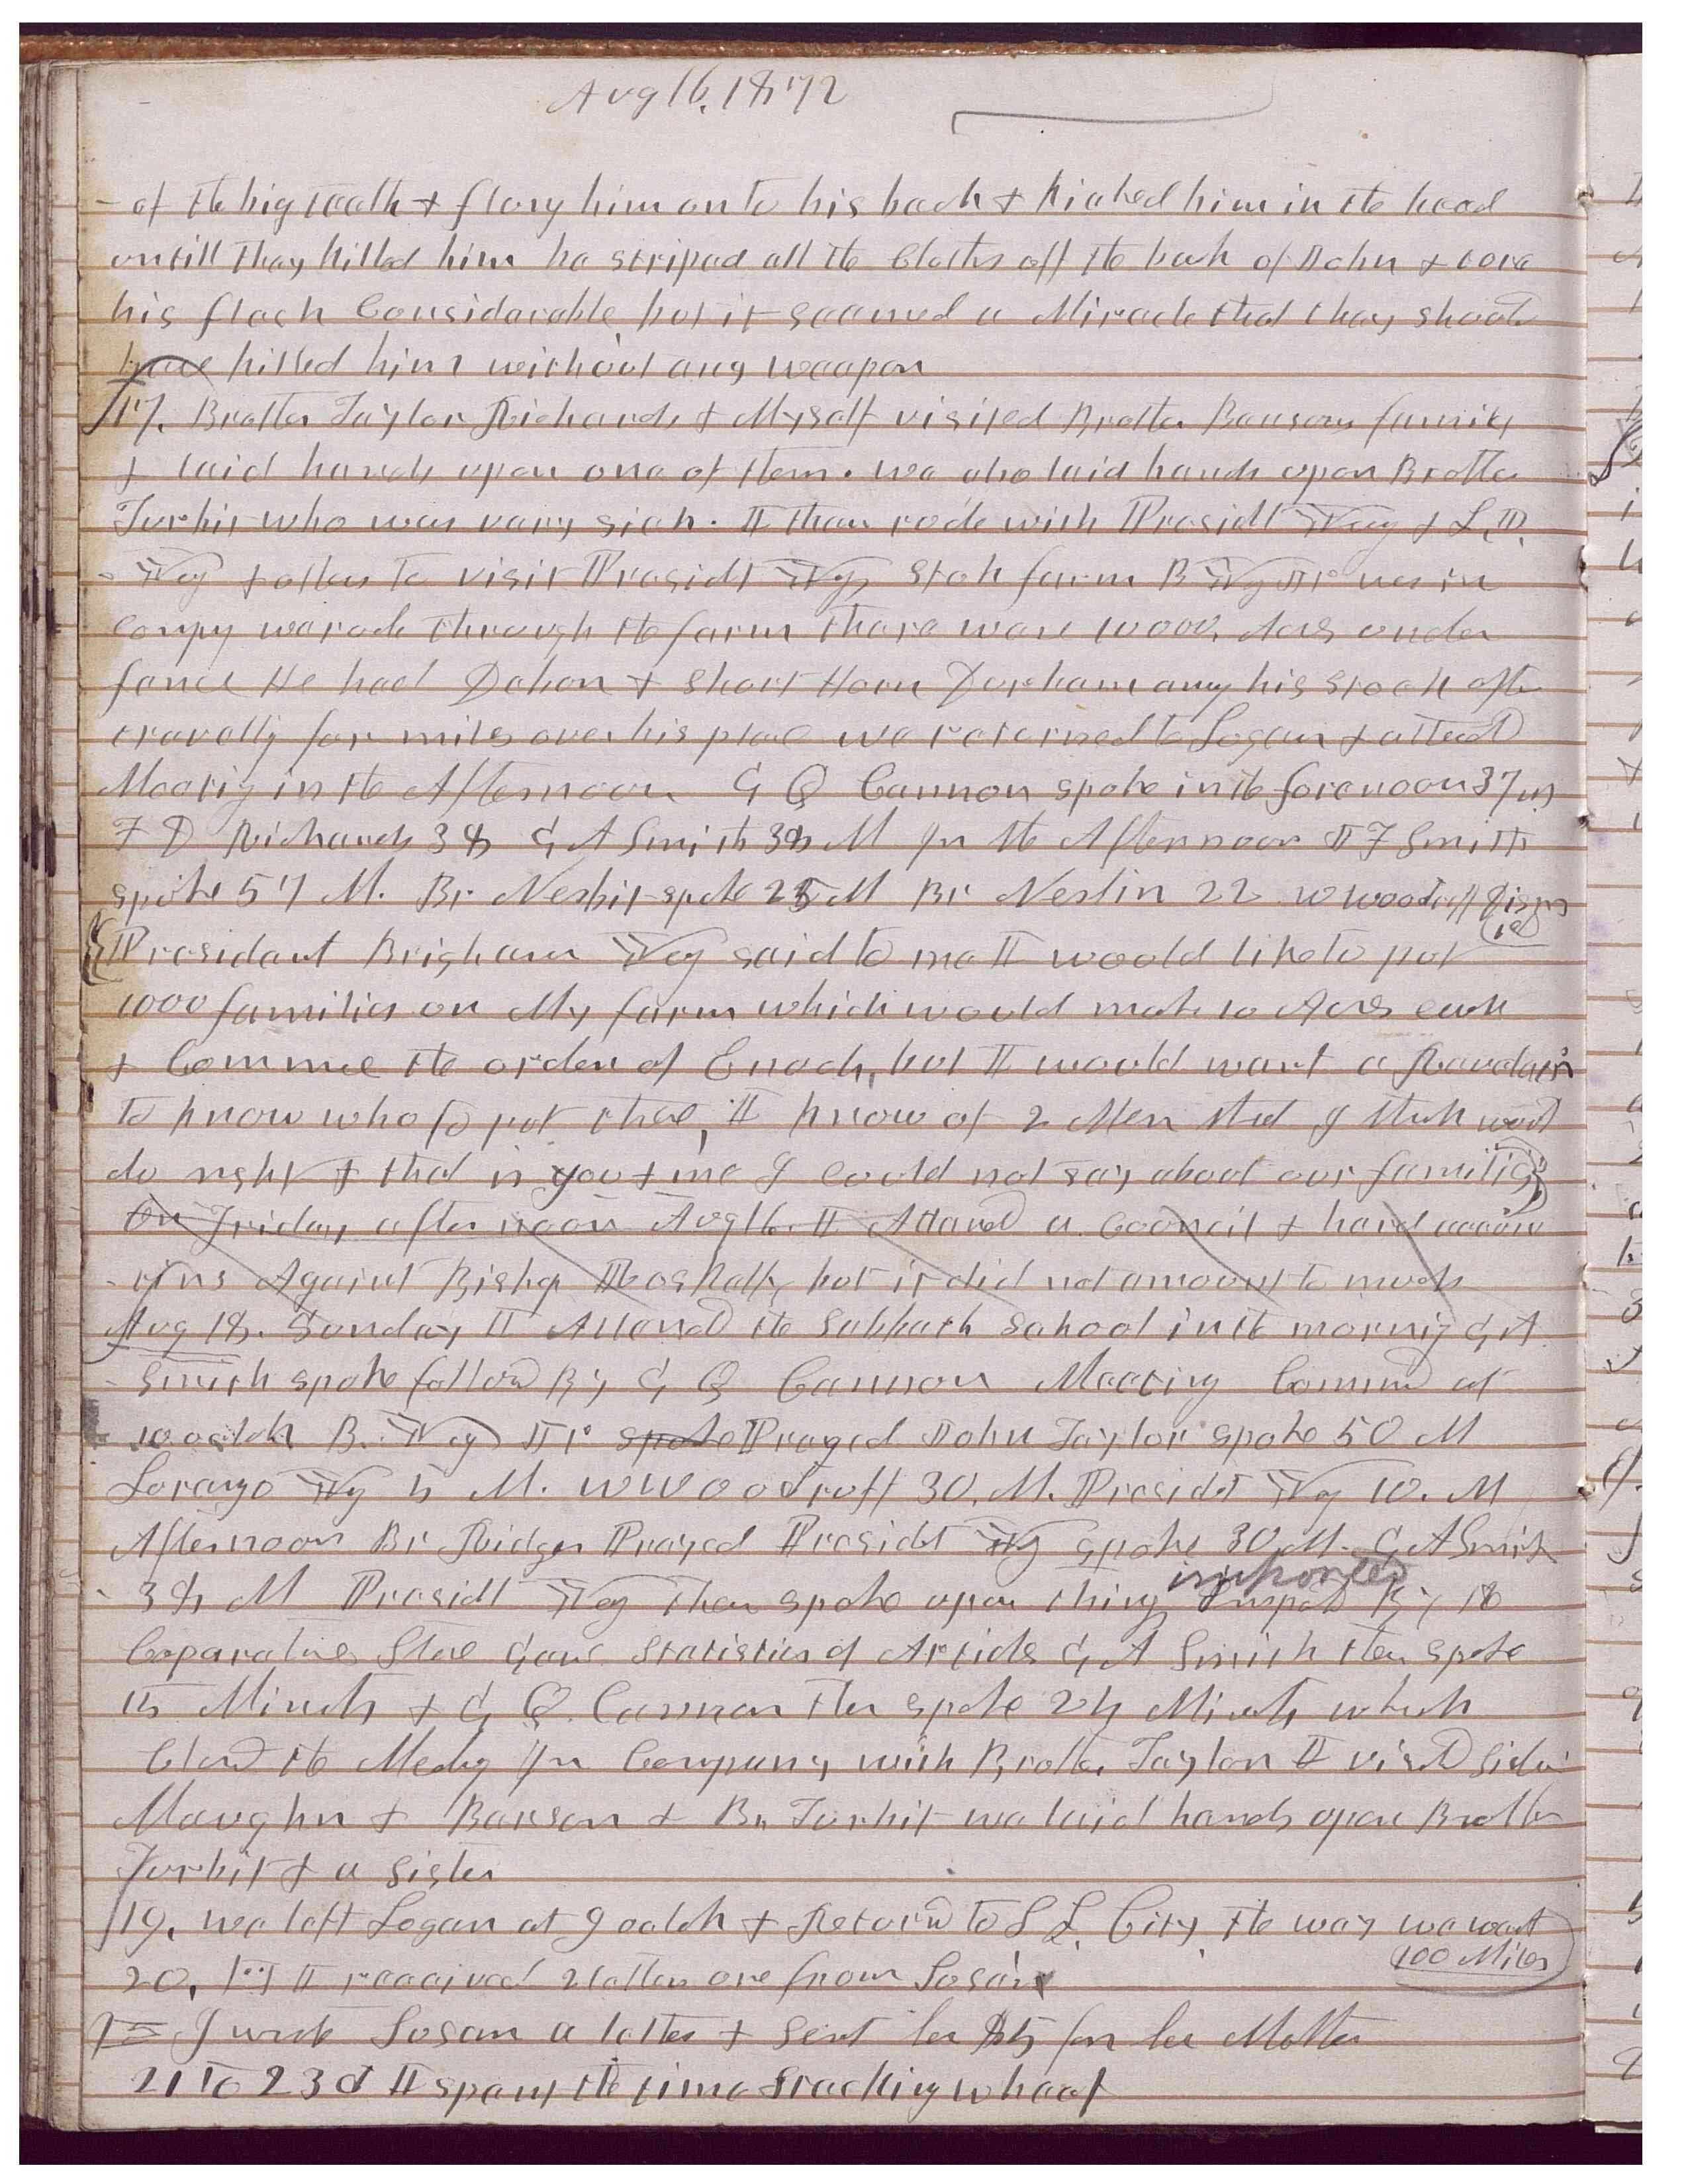 Aug 16, 1872
of the big teeth & flung him onto his back & kicked him in the head
untill they killed him he striped all the cloths off the back of John & tore
his flesh Considerable but it seemed a Miracle that they should
have killed him without any weapon
17. Brother Taylor Richards & Myself visited Brother Bensons family
& laid hands upon one of them. we also laid hands upon Brother
Turbit who was very sick. I then rode with Presidt Yg & L D.
Yg & others to visit Presidt Ygs Stok farm B Yg Jr was in
Compy we rode through the farm there were 10000, Acrs under
fence He had Devon & Short Horn Durham amg his stock after
travellg for miles over his place we returned to Logan & attend
Meetig in the Afternoon G Q Cannon spoke in the forenoon 37 m
F D Richards 38 G A Smith 38 M In the Afternoon J F Smith
spoke 57 M. Br Nesbit spoke 25 M Br Neslin 22 W Woodruff
President Brigham Yg said to me I would like to put
1000 families on My farm which would make 10 Acrs each
& Commce the order of Enoch, but I would want a Revelatin
to know who to put there, I know of 2 Men that I think would
do right & that is you & me I could not say about our families
On Friday after noon Aug 16. I Attend a Council & hard accusa
tins Against Bishop but it did not amount to much
Aug 18. Sunday I Attend the Sabbath School in the mornig G A
Smith spoke follow By G Q Cannon Meeting Commd at
10 oclok B. Yg Jr spoke Prayed John Taylor spoke 50 M
Lorenzo Yg 5 M. W Woodruff 30. M. Presidt Yg 10. M
Afternoon Br Ridges Prayed Presidt Yg spoke 30 M. G A Smith
38 M Presidt Yg then spoke upon things imported By the
Coparative Store Gave Statistics of Articls G A Smith then spoke
15 Minuts & G Q. Cannon then spoke 24 Minuts which
Closd the Meetg In Company with Brother Taylor I visitd Sister
Maughn & Benson & Br Turbit we laid hands upon Brother
Turbit & a sister
19. we left Logan at 9 oclok & Returnd to S L. City, the way we went
100 Miles
20, I received 2 letters one from Susan
I wrote Susan a letter & sent her $5 for her Mother
21 to 23d I spent the time stacking wheat